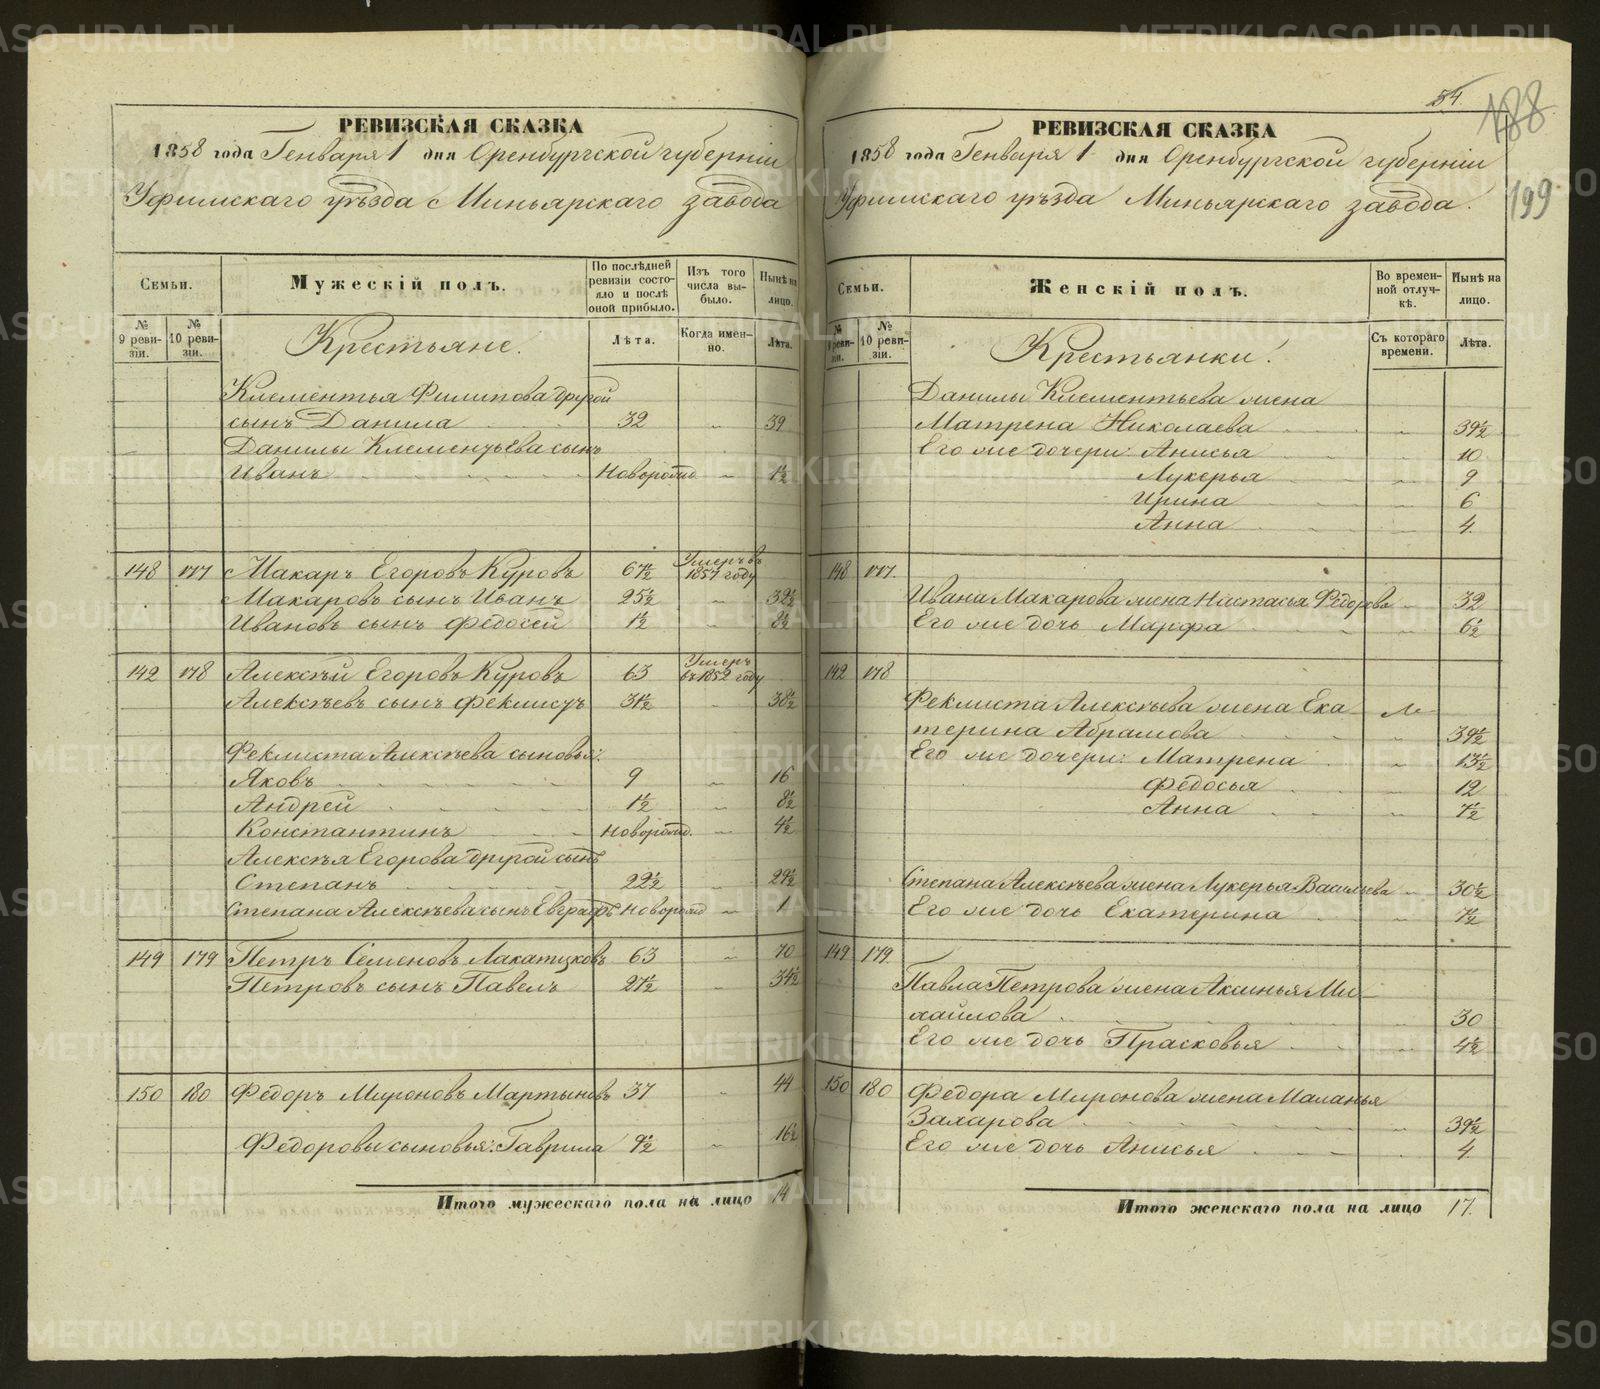 54.
188
199
РЕВИЗСКАЯ СКАЗКА
1858 года Генваря 1 дня Оренбургской губерніи
Уфимскаго уѣзда Миньярскаго завода
Семьи.
Мужескій полъ.
По послѣдней ревизіи состояло и послѣ оной прибыло.
Изъ того числа выбыло.
Нынѣ на лицо.
№ 9 ревизіи.
№ 10 ревизіи.
Крестьяне.
Лѣта.
Когда именно.
Лѣта.
Клементья Филипова другой
сынъ Данила 32 39
Данилы Клементьева сынъ
Иванъ Новорожд. 1½
148 177 Макаръ Егоровъ Куровъ 67½ Умеръ въ 1857 году
Макаровъ сынъ Иванъ 25½ 32½
Ивановъ сынъ Федосей 1½ 8½
142 178 Алексѣй Егоровъ Куровъ 63 Умеръ въ 1852 году
Алексѣевъ сынъ Феклистъ 31½ 38½
Феклиста Алексѣева сыновья:
Яковъ 9 16
Андрей 1½ 8½
Константинъ Новорожд. 4½
Алексѣя Егорова другой сынъ
Степанъ 22½ 29½
Степана Алексѣева сынъ Евграфъ Новорожд 1
149 179 Петръ Семеновъ 63 70
Петровъ сынъ Павелъ 27½ 34½
150 180 Федоръ Мироновъ Мартыновъ 37 44
Федоровы сыновья: Гаврила 9½ 16½
Итого мужескаго пола на лицо 14
РЕВИЗСКАЯ СКАЗКА
1858 года Генваря 1 дня Оренбургской губерніи
Уфимскаго уѣзда Миньярскаго завода.
Семьи.
Женскій полъ.
Во временной отлучкѣ.
Нынѣ на лицо.
№ 9 ревизіи.
№ 10 ревизіи.
Крестьянки.
Съ котораго времени.
Лѣта.
Данилы Клементьева жена
Матрена Николаева 39½
Его же дочери: Анисья 10
Лукерья 9
Ирина 6
Анна 4.
148 177.
Ивана Макарова жена Настасья Федорова 32
Его же дочь Марфа 6½
142 178
Феклиста Алексѣева жена Ека
терина Абрамова 39½
Его же дочери: Матрена 13½
Федосья 12
Анна 7½
Степана Алексѣева жена Лукерья Васильева 30½
Его же дочь Екатерина 7½
149 179.
Павла Петрова жена Аксинья Ми-
хайлова 30
Его же дочь Прасковья 4½
150 180 Федора Миронова жена Маланья
Захарова 39½
Его же дочь Анисья 4.
Итого женскаго пола на лицо 17.
METRIKI.GASO-URAL.RU